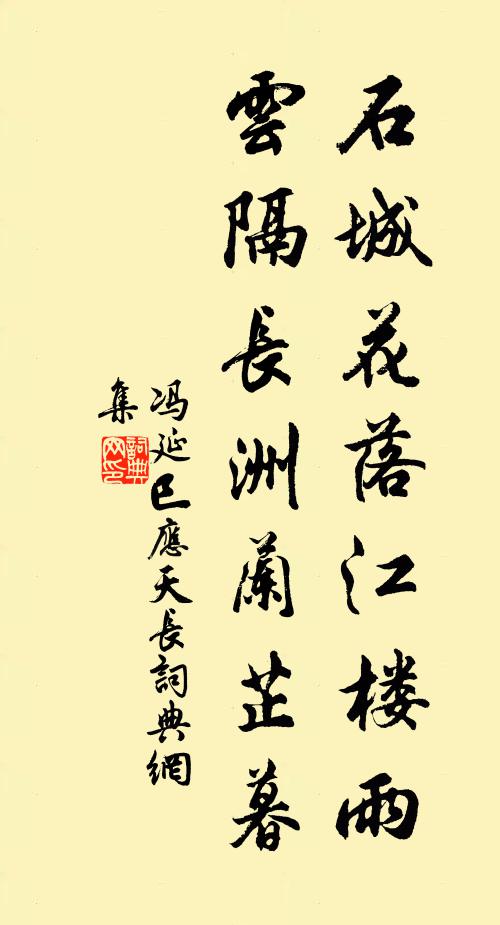 石城花落江楼雨
雲隔長洲蘭芷暮
冯延巳應天長詞典網
集
詞典網印